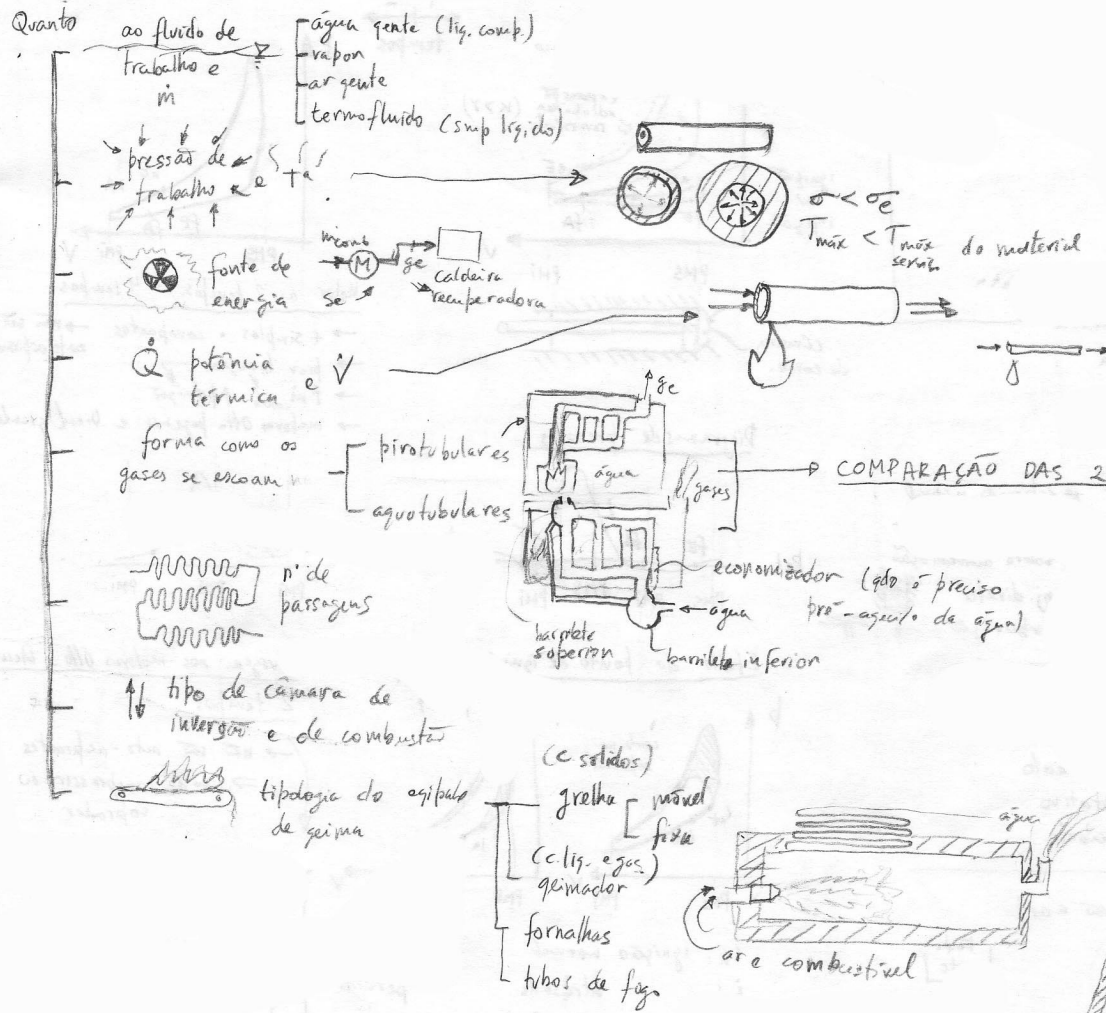 Quanto
ao fluido de
trabalho e
ṁ
água qente (liq. comp.)
vapor
ar qente
termofluido (smp líqido)
pressão de
trabalho e Ta
σ < σe
Tmáx < Tmáx do material
serviço
fonte de
energia
ṁcomb
M
ge
se
caldeira
recuperadora
Q̇ potência
térmica e V̇
forma como os
gases se escoam
pirotubulares
aquotubulares
ge
água
gases
COMPARAÇÃO DAS 2
economizador (qdo é preciso
pré-aqecito da água)
água
barrilete
superior
barrilete inferior
nº de
passagens
tipo de câmara de
inversão e de combustão
tipologia do eqipato
de qeima
(c. sólidos)
grelha
móvel
fixa
(c. liq. e gas.)
qeimador
fornalhas
tubos de fogo
água
ar e combustível